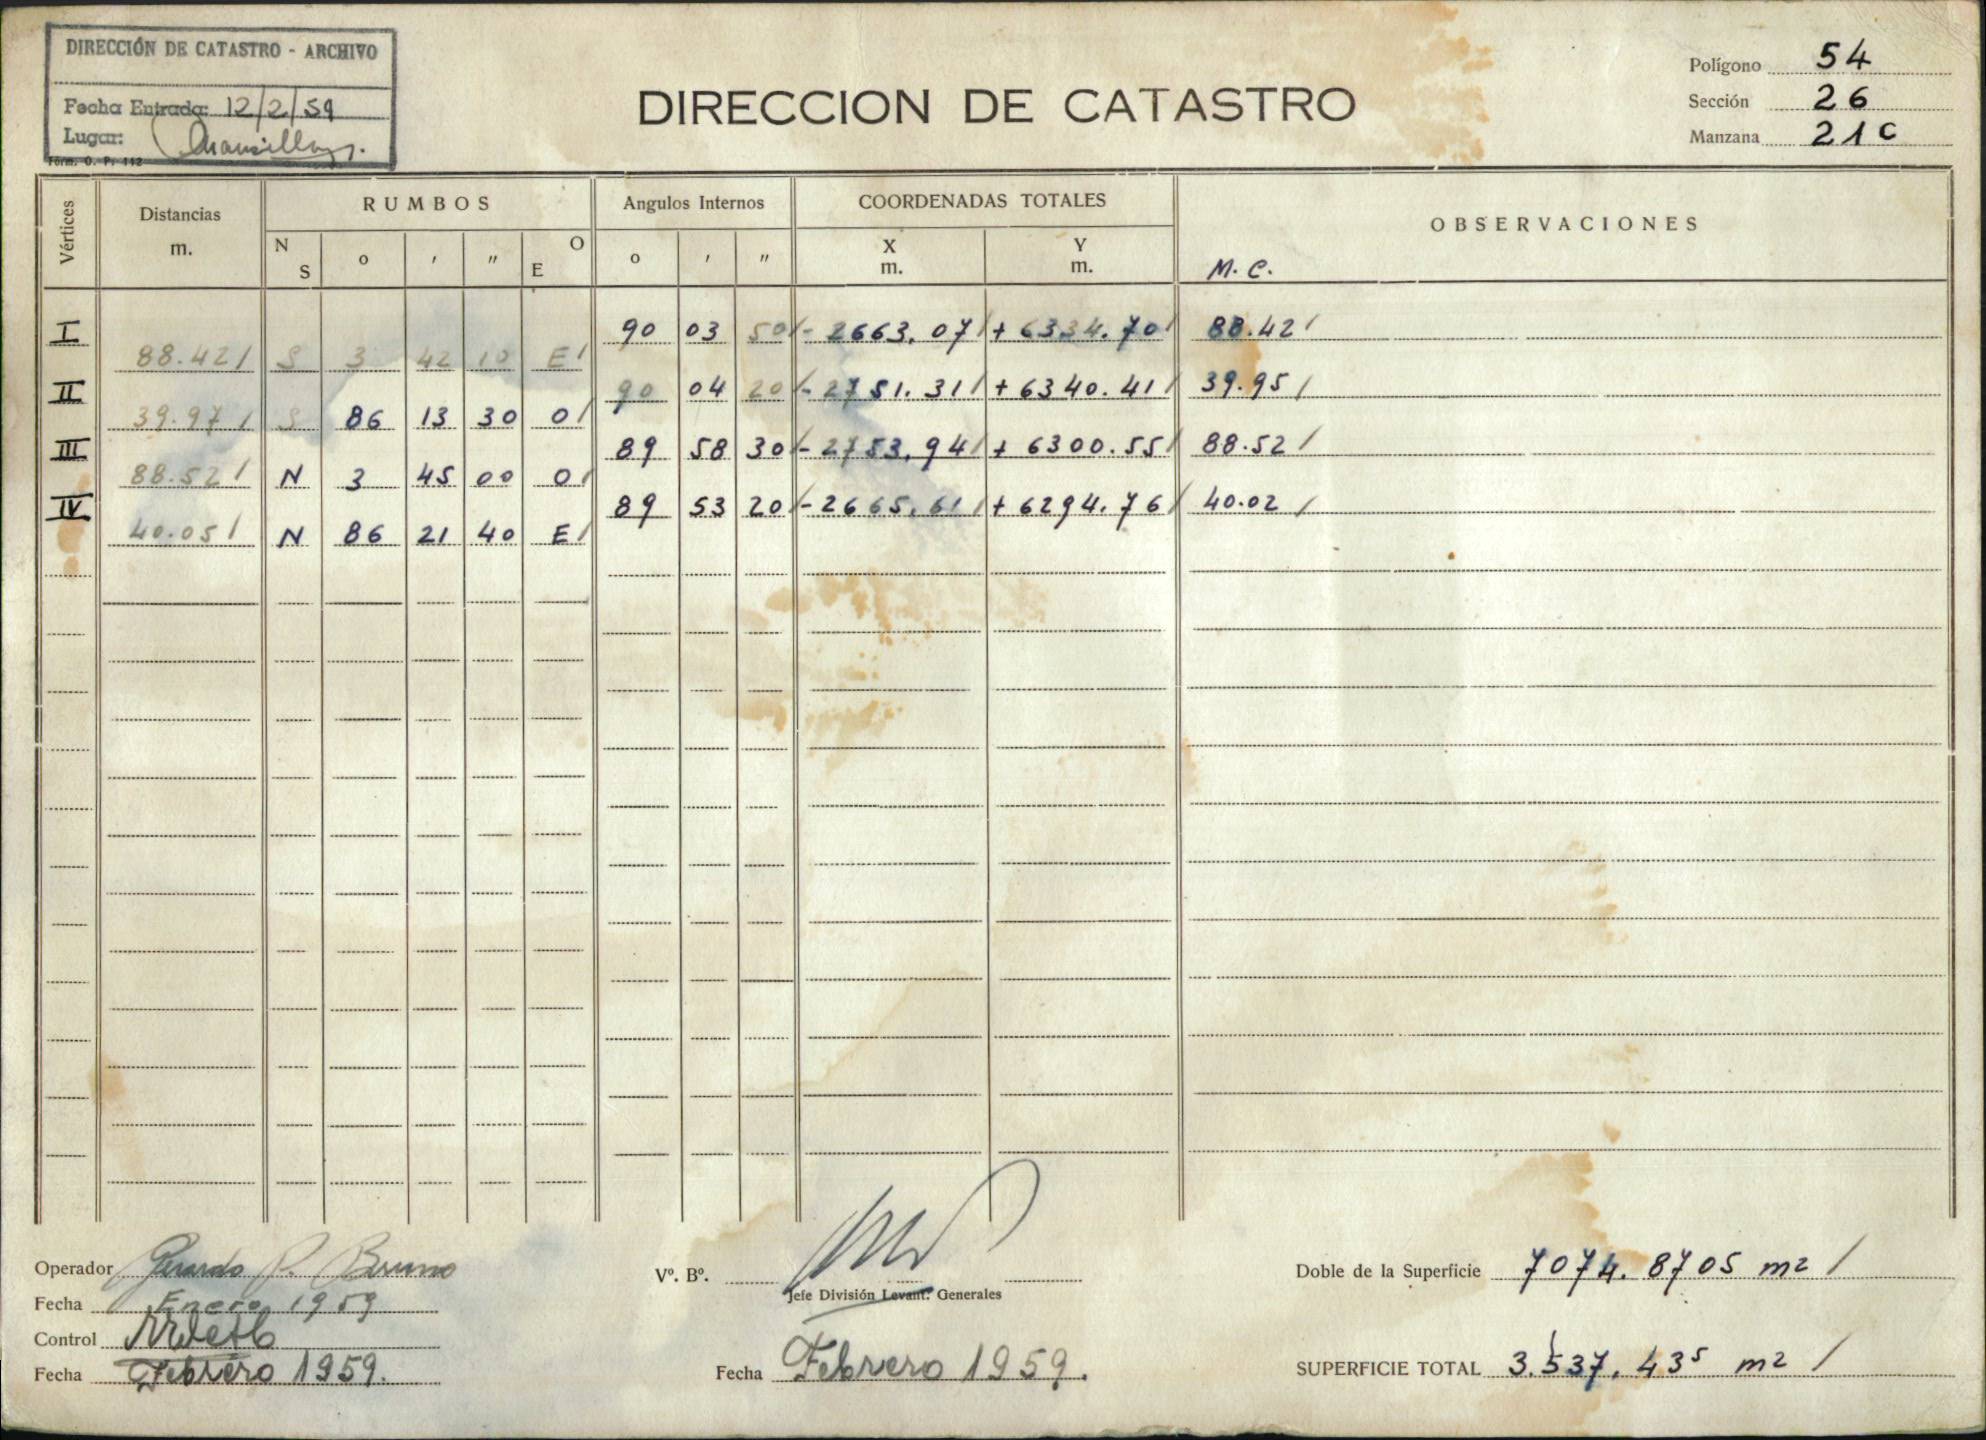 DIRECCIÓN DE CATASTRO - ARCHIVO
Fecha Entrada: 12/2/59
Lugar:
Form. O. P. 112
DIRECCION DE CATASTRO
Polígono 54
Sección 26
Manzana 21c
Vértices Distancias m. RUMBOS Angulos Internos COORDENADAS TOTALES OBSERVACIONES
N S o ' " O E o ' " X m. Y m. M.C.
I 90 03 50/ - 2663.07/ + 6334.70/ 88.42/
88.42/ S 3 42 10 E/
II 90 04 20/ - 2751.31/ + 6340.41/ 39.95/
39.97/ S 86 13 30 O/
III 89 58 30/ - 2753.94/ + 6300.55/ 88.52/
88.52/ N 3 45 00 O/
IV 89 53 20/ - 2665.61/ + 6294.76/ 40.02/
40.05/ N 86 21 40 E/
Operador Gerardo P. Bruno
Fecha Enero 1959
Control
Fecha Febrero 1959.
Vº. Bº.
Jefe División Levant. Generales
Fecha Febrero 1959.
Doble de la Superficie 7074.8705 m2 /
SUPERFICIE TOTAL 3.537.435 m2 /